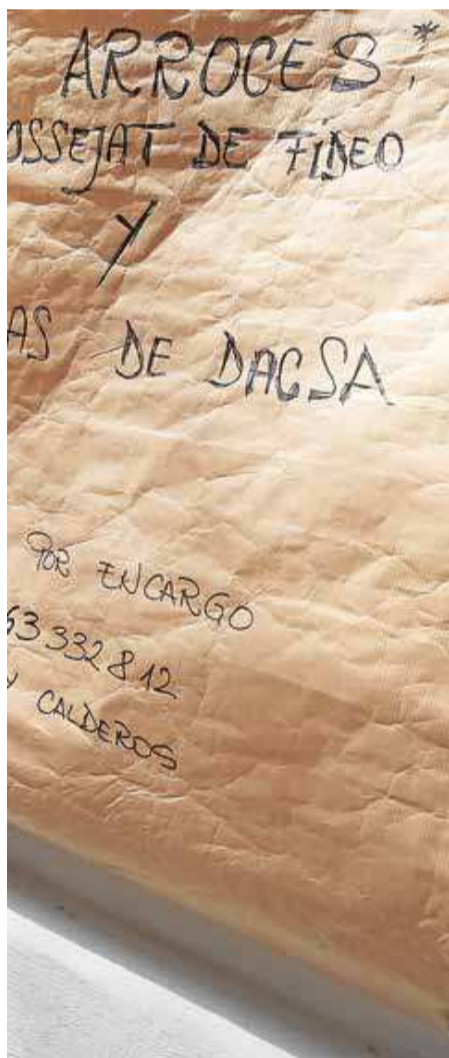 ARROCES.*
OSSEJAT DE FIDEO
Y
AS DE DACSA
POR ENCARGO
63 332 8 12
Y CALDEROS